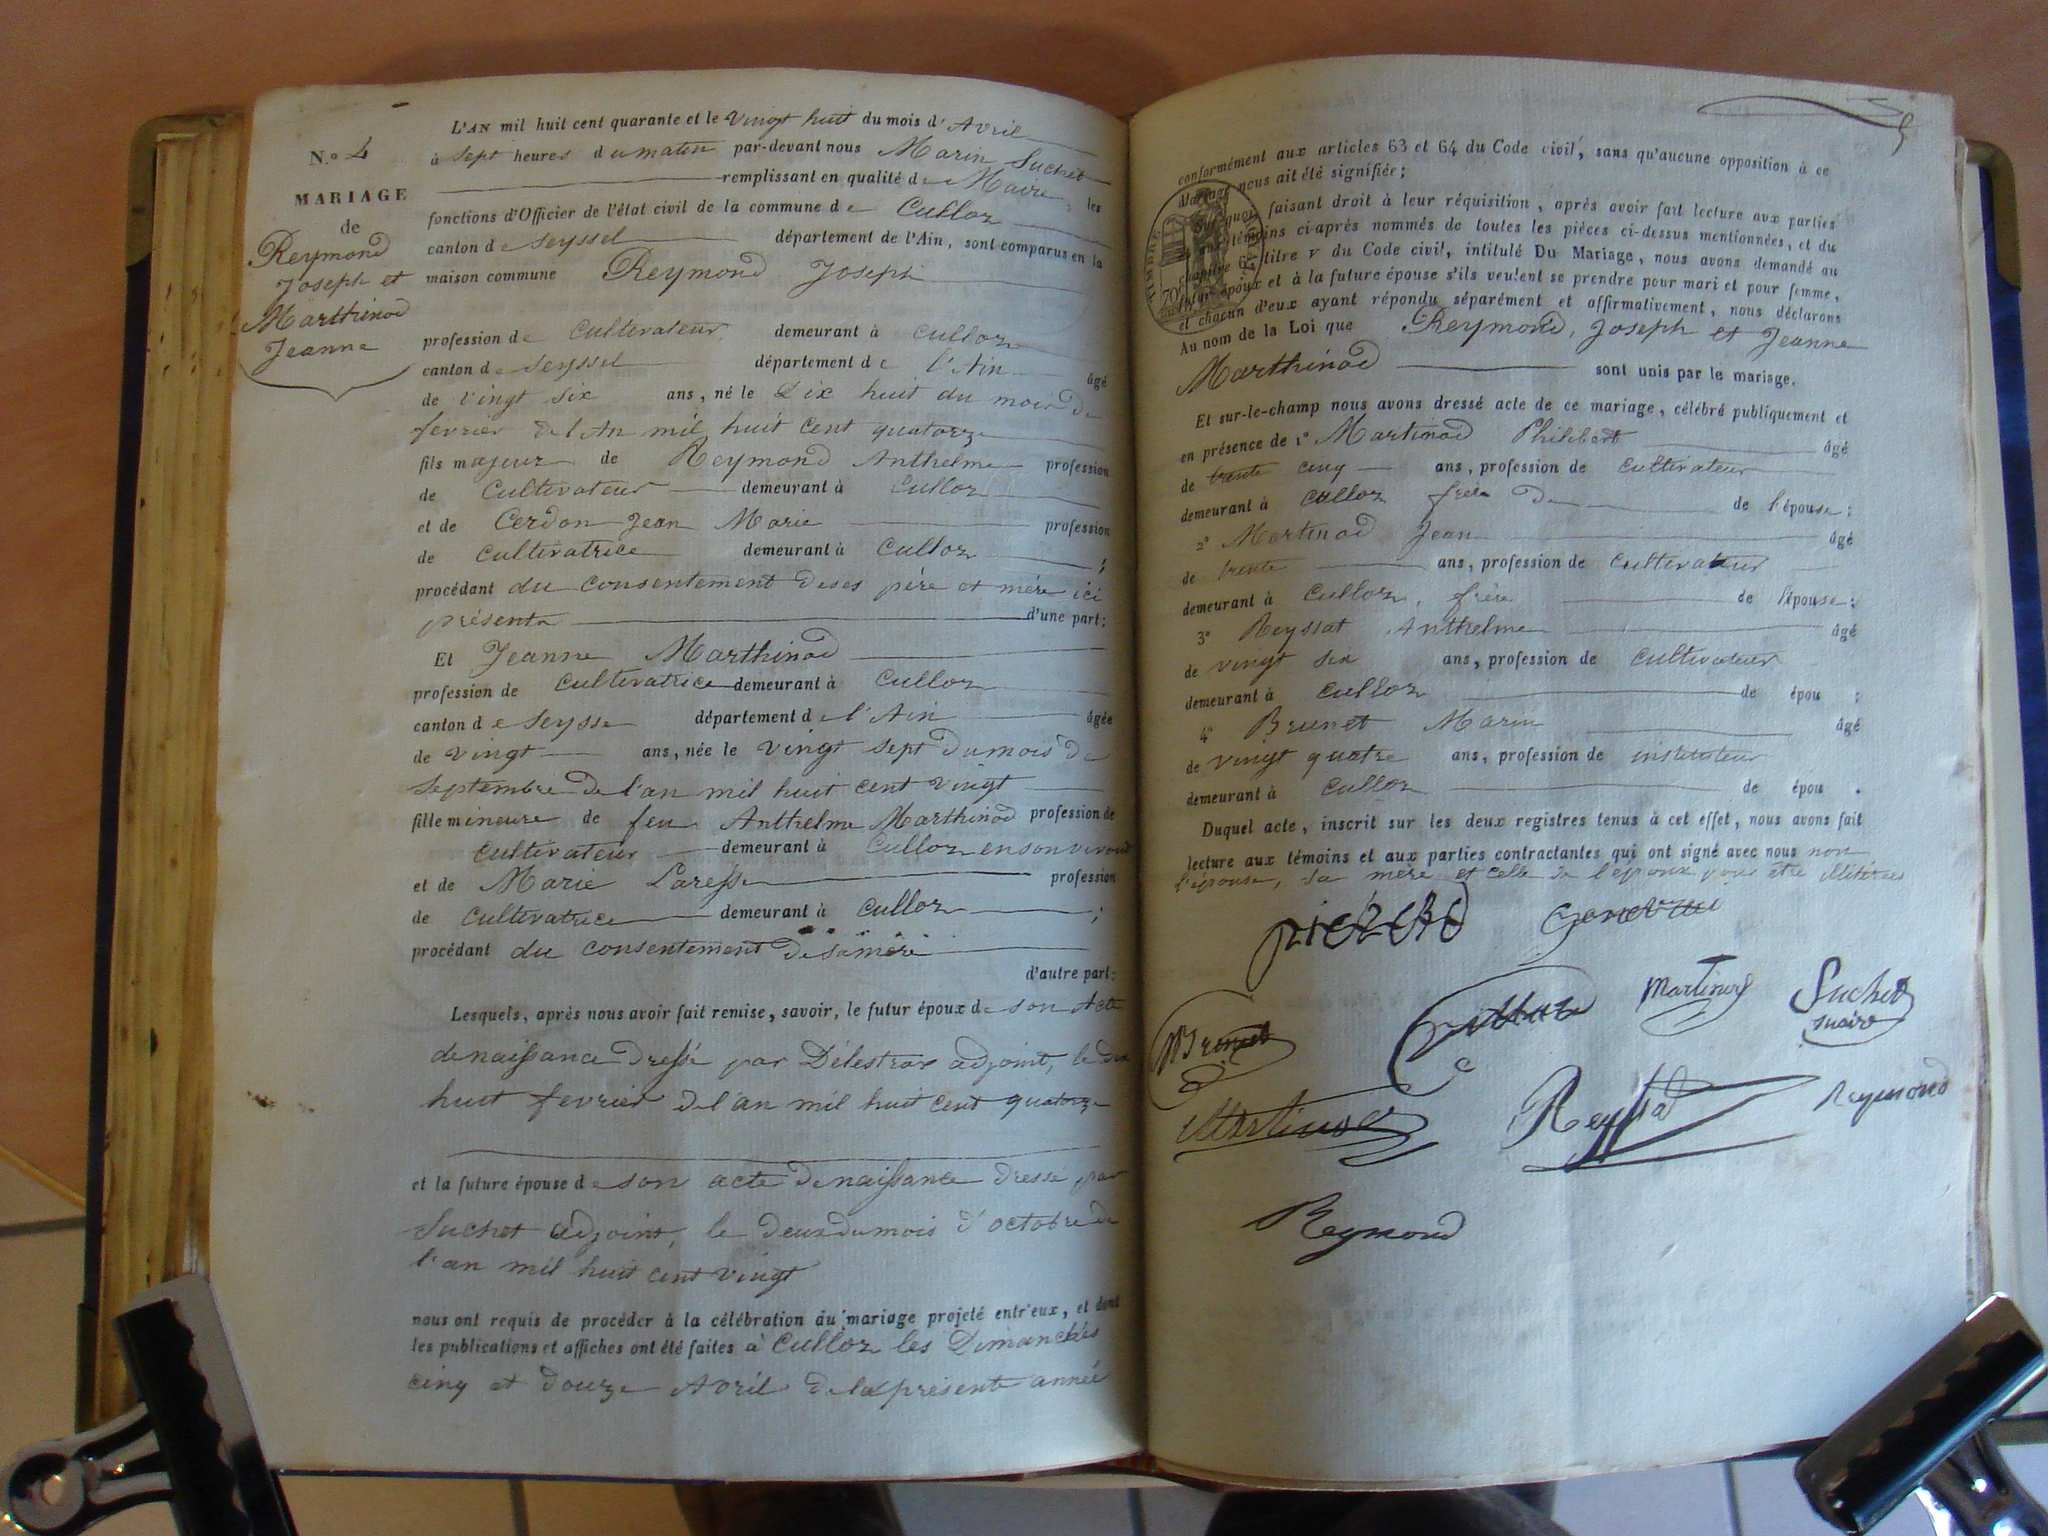 N.º 4
MARIAGE
de
Reymond
Joseph et
Marthinod
Jeanne
L'AN mil huit cent quarante et le vingt huit du mois d'Avril
à sept heures du matin par-devant nous Marin Suchet
remplissant en qualité de Maire, les
fonctions d'Officier de l'état civil de la commune de Culloz
canton de Seyssel département de l'Ain, sont comparus en la
maison commune Reymond Joseph
profession de Cultivateur demeurant à Culloz
canton de Seyssel département de l'Ain âgé
de vingt six ans, né le Dix huit du mois de
fevrier de l'An mil huit cent quatorze
fils majeur de Reymond Anthelme profession
de Cultivateur demeurant à Culloz
et de Cerdon Jean Marie profession
de Cultivatrice demeurant à Culloz ;
procédant du consentement de ses père et mère ici
présents d'une part;
Et Jeanne Marthinod
profession de Cultivatrice demeurant à Culloz
canton de Seysse département de l'Ain âgée
de vingt ans, née le vingt sept du mois de
Septembre de l'an mil huit cent vingt
fille mineure de feu Anthelme Marthinod profession de
cultivateur demeurant à Culloz en son vivant
et de Marie Laresse profession
de Cultivatrice demeurant à Culloz ;
procédant du consentement de sa mère
d'autre part;
Lesquels, après nous avoir fait remise, savoir, le futur époux de son Acte
de naissance dressé par Délestraz adjoint, le dix
huit fevrier de l'an mil huit cent quatorze
et la future épouse de son acte de naissance dressé par
Suchet adjoint, le deux du mois d'octobre de
l'an mil huit cent vingt
nous ont requis de procéder à la célébration du mariage projeté entr'eux, et dont
les publications et affiches ont été faites à Culloz les Dimanches
cinq et douze Avril de la présente année
conformément aux articles 63 et 64 du Code civil, sans qu'aucune opposition à ce
Mariage nous ait été signifiée;
Sur quoi, faisant droit à leur réquisition, après avoir fait lecture aux parties
et aux témoins ci-après nommés de toutes les pièces ci-dessus mentionnées, et du
chapitre 6 titre V du Code civil, intitulé Du Mariage, nous avons demandé au
futur époux et à la future épouse s'ils veulent se prendre pour mari et pour femme,
et chacun d'eux ayant répondu séparément et affirmativement, nous déclarons
Au nom de la Loi que Reymond, Joseph et Jeanne
Marthinod sont unis par le mariage.
TIMBRE ROYAL
70c
Et sur-le-champ nous avons dressé acte de ce mariage, célébré publiquement et
en présence de 1º Martinod Philibert âgé
de trente cinq ans, profession de Cultivateur
demeurant à Culloz frère de de l'épouse;
2º Martinod Jean âgé
de trente ans, profession de Cultivateur
demeurant à Culloz, frère de l'épouse;
3º Reyssat Anthelme âgé
de vingt six ans, profession de cultivateur
demeurant à Culloz de épou ;
4º Brunet Marin âgé
de vingt quatre ans, profession de instituteur
demeurant à Culloz de épou .
Duquel acte, inscrit sur les deux registres tenus à cet effet, nous avons fait
lecture aux témoins et aux parties contractantes qui ont signé avec nous non
l'épouse, sa mère et celle de l'époux pour être illitérées
Brunet
Martinod
Suchet
maire
Martinod
Reyssat
Reymond
Reymond